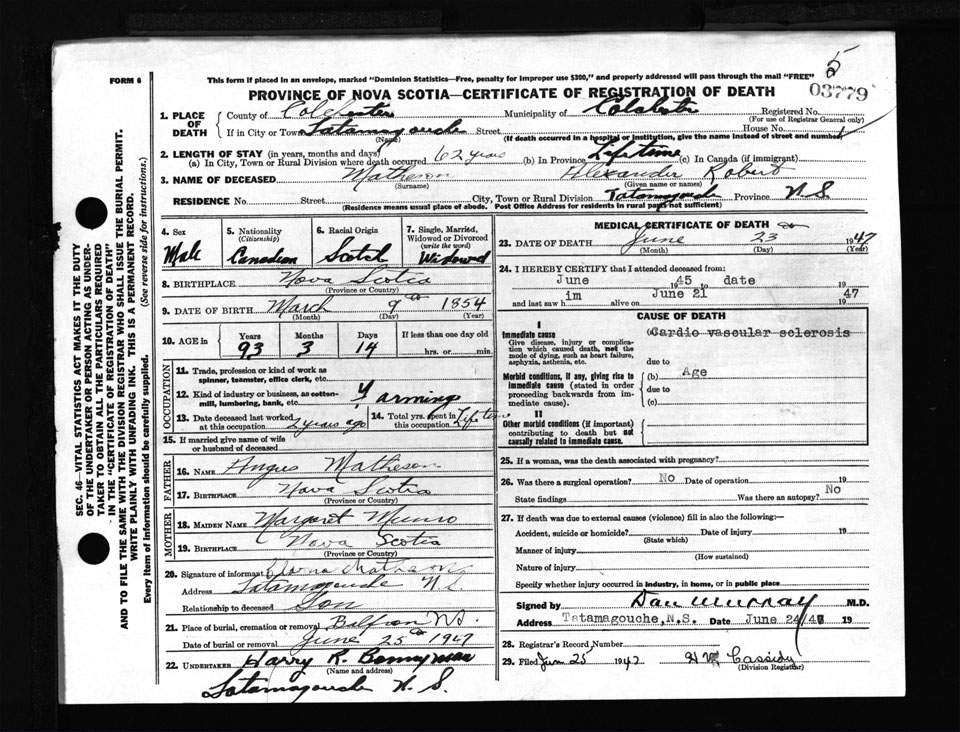 5
FORM 6
This form if placed in an envelope, marked "Dominion Statistics—Free, penalty for improper use $300," and properly addressed will pass through the mail "FREE"
PROVINCE OF NOVA SCOTIA—CERTIFICATE OF REGISTRATION OF DEATH
03779
1. PLACE OF DEATH
County of Colchester Municipality of Colchester Registered No.
(For use of Registrar General only)
If in City or Town Tatamagouche Street House No.
(Name) (If death occurred in a hospital or institution, give the name instead of street and number)
2. LENGTH OF STAY (in years, months and days)
(a) In City, Town or Rural Division where death occurred 62 years (b) In Province Lifetime (c) In Canada (if immigrant)
3. NAME OF DECEASED Matheson Alexander Robert
(Surname) (Given name or names)
RESIDENCE No. Street City, Town or Rural Division Tatamagouche Province N.S.
(Residence means usual place of abode. Post Office Address for residents in rural parts not sufficient)
4. Sex Male
5. Nationality (Citizenship) Canadian
6. Racial Origin Scotch
7. Single, Married, Widowed or Divorced (write the word) Widowed
8. BIRTHPLACE Nova Scotia
(Province or Country)
9. DATE OF BIRTH March 9th 1854
(Month) (Day) (Year)
10. AGE in Years Months Days If less than one day old
93 3 14 hrs. or min.
OCCUPATION
11. Trade, profession or kind of work as spinner, teamster, office clerk, etc.
12. Kind of industry or business, as cotton-mill, lumbering, bank, etc. Farming
13. Date deceased last worked at this occupation 2 years ago
14. Total yrs. spent in this occupation Lifetime
15. If married give name of wife or husband of deceased
FATHER
16. NAME Angus Matheson
17. BIRTHPLACE Nova Scotia
(Province or Country)
MOTHER
18. MAIDEN NAME Margaret Munro
19. BIRTHPLACE Nova Scotia
(Province or Country)
20. Signature of informant Matheson
Address Tatamagouche N.S.
Relationship to deceased Son
21. Place of burial, cremation or removal Balfron N.S.
Date of burial or removal June 25th 1947
22. UNDERTAKER Harry R. Bonnyman
(Name and address)
Tatamagouche N.S.
MEDICAL CERTIFICATE OF DEATH
23. DATE OF DEATH June 23 1947
(Month) (Day) (Year)
24. I HEREBY CERTIFY that I attended deceased from:
June 1945 to date 19
and last saw him alive on June 21 1947
CAUSE OF DEATH
I
Immediate cause
Give disease, injury or complication which caused death, not the mode of dying, such as heart failure, asphyxia, asthenia, etc.
(a) Cardio vascular sclerosis
due to
Morbid conditions, if any, giving rise to immediate cause (stated in order proceeding backwards from immediate cause).
(b) Age
due to
(c)
II
Other morbid conditions (if important) contributing to death but not causally related to immediate cause.
25. If a woman, was the death associated with pregnancy?
26. Was there a surgical operation? No Date of operation 19
State findings Was there an autopsy? No
27. If death was due to external causes (violence) fill in also the following:—
Accident, suicide or homicide? Date of injury 19
(State which)
Manner of injury
(How sustained)
Nature of injury
Specify whether injury occurred in industry, in home, or in public place
Signed by Dan Murray M.D.
Address Tatamagouche, N.S. Date June 24/47 19
28. Registrar's Record Number
29. Filed Jun 25 1947 Cassidy
(Division Registrar)
SEC. 46—VITAL STATISTICS ACT MAKES IT THE DUTY
OF THE UNDERTAKER OR PERSON ACTING AS UNDER-
TAKER TO OBTAIN ALL THE PARTICULARS REQUIRED
IN THE "CERTIFICATE OF REGISTRATION OF DEATH"
AND TO FILE THE SAME WITH THE DIVISION REGISTRAR WHO SHALL ISSUE THE BURIAL PERMIT.
WRITE PLAINLY WITH UNFADING INK. THIS IS A PERMANENT RECORD.
Every item of information should be carefully supplied. (See reverse side for instructions.)